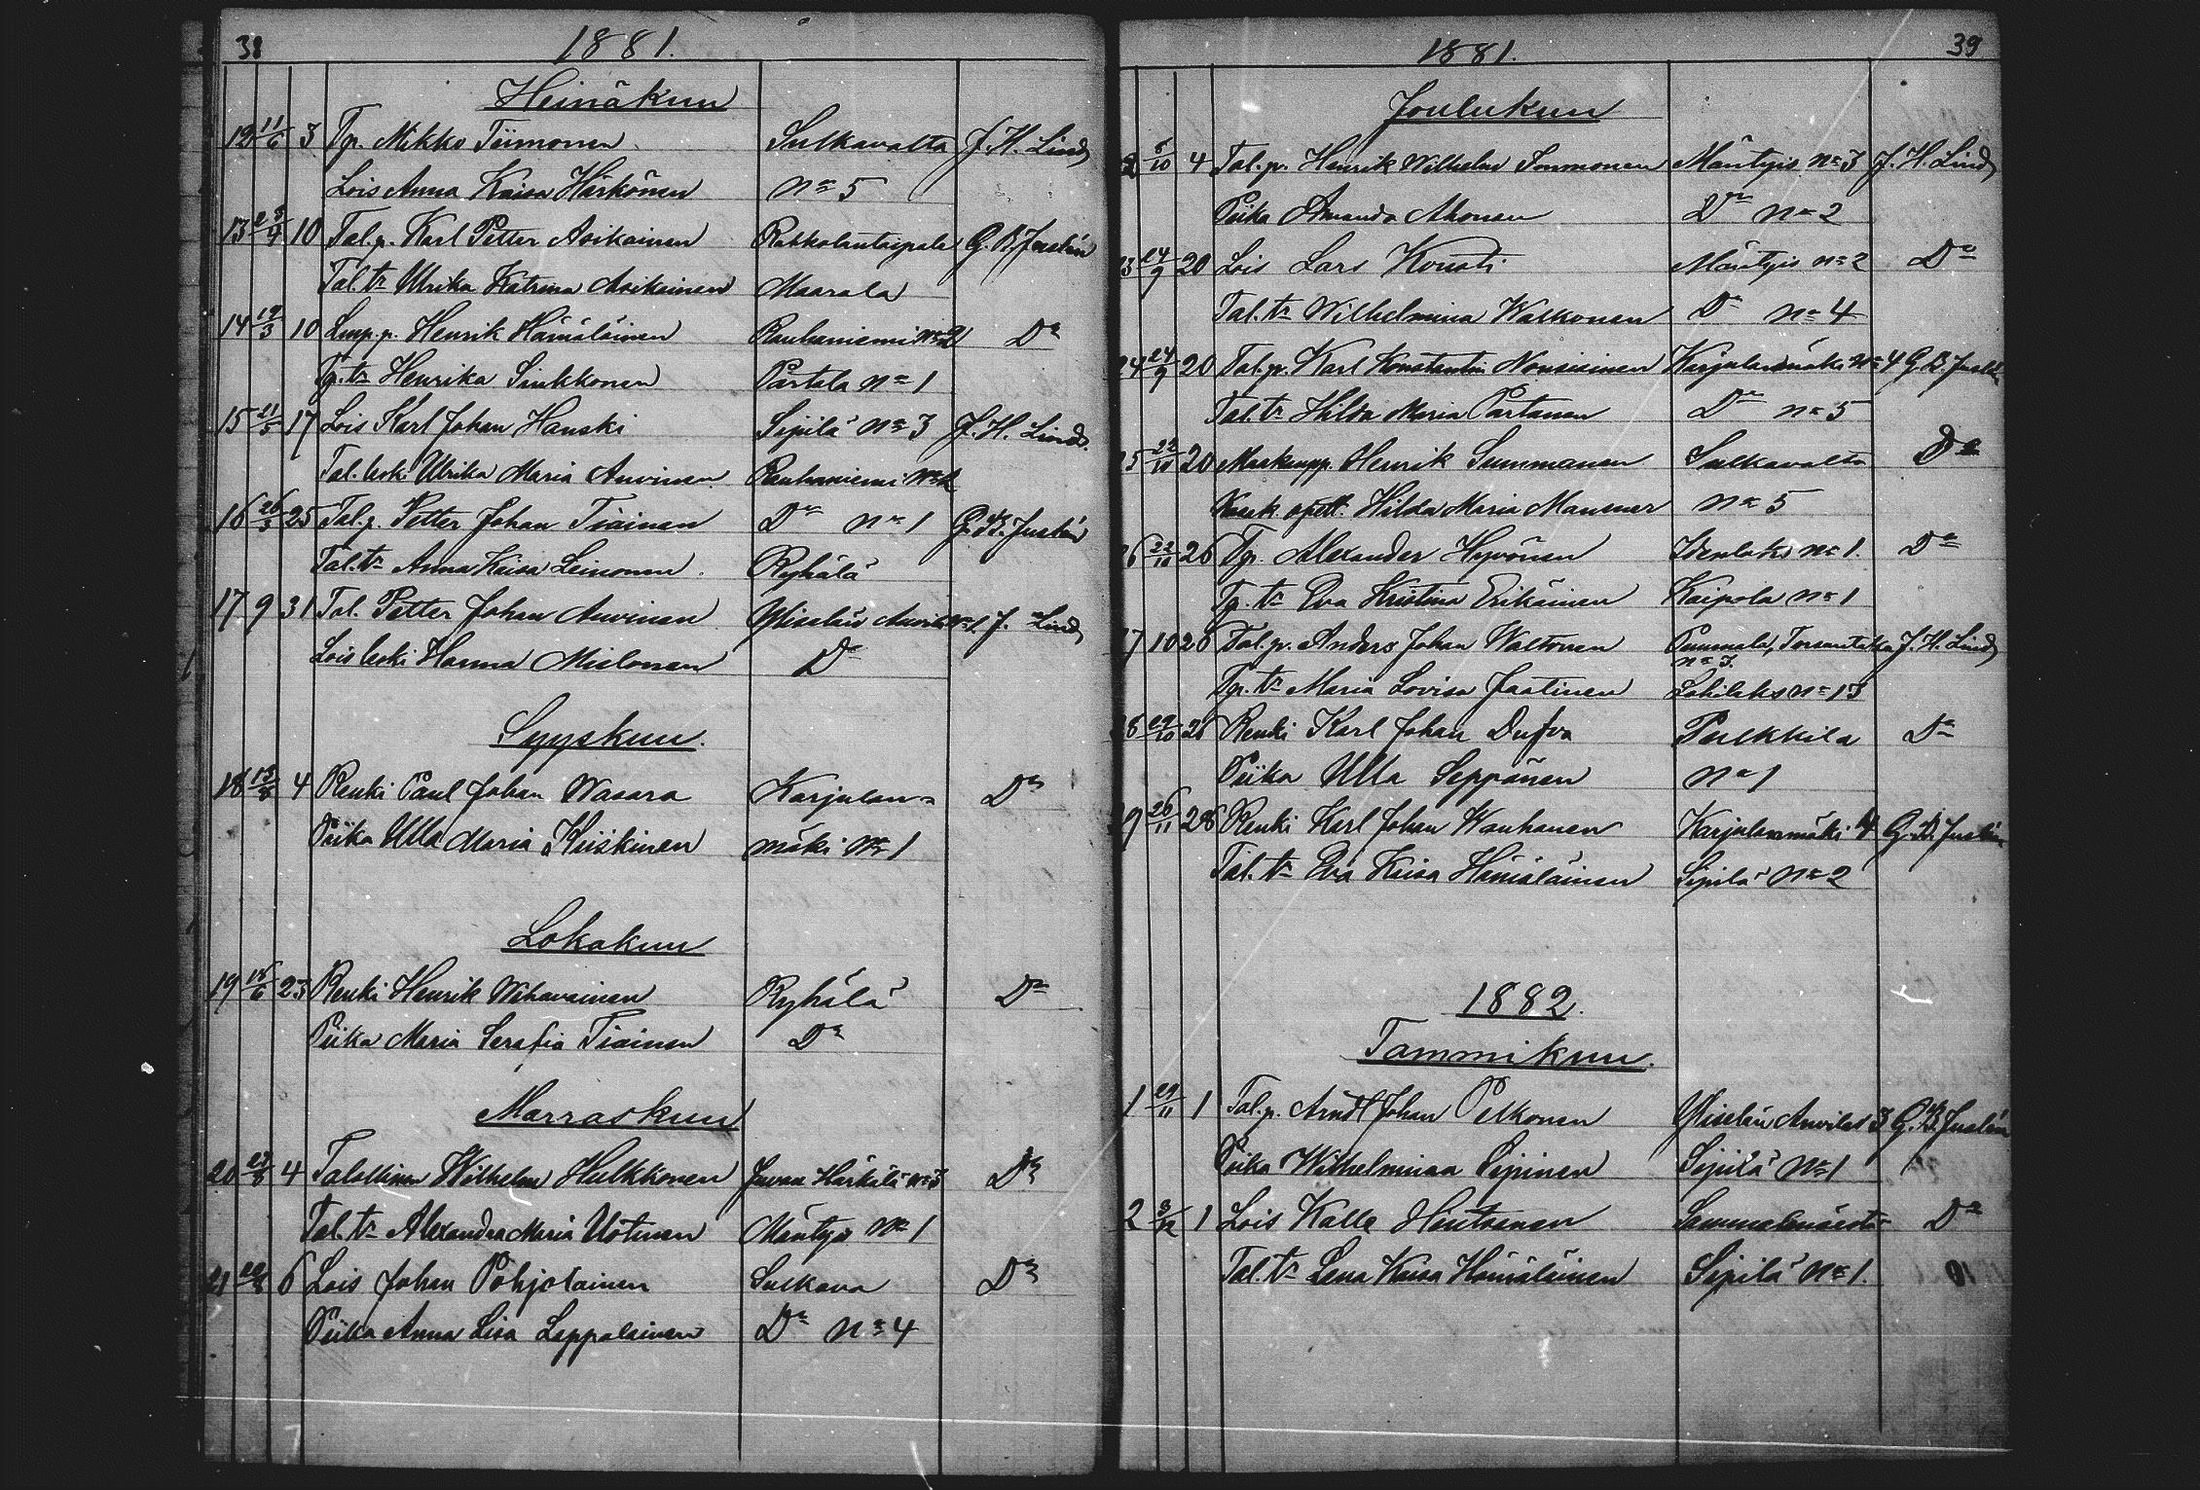 38
1881.
Heinäkuu
12 11/6 3 Tp. Mikko Tiimonen Sulkavalta J. H. Lind
Lois Anna Kaisa Härkönen No 5
13 10 Tal.p. Karl Petter Asikainen G. A. Juslén
Tal. tr Ulrika Katrina Asikainen Maarala
14 19/3 10 Henrik Hämäläinen Rauhaniemi No 2 Do
Tp. tr Henrika Sinkkonen Partala No 1
15 21/5 17 Lois Karl Johan Hanski Sipilä No 3 J. H. Lind
Tal. leski Ulrika Maria Auvinen Rauhaniemi
16 25 Tal.p. Petter Johan Tiainen Do No 1 G. A. Juslén
Tal. tr Anna Kaisa Leinonen Ryhälä
17 9 31 Tal. Petter Johan Auvinen J. Lind
Lois leski Hanna Mielonen Do
Syyskuu.
18 4 Renki Paul Johan Wasara Karjulan=
Do
Piika Ulla Maria Kiiskinen mäki No 1
Lokakuu
19 23 Renki Henrik Wihavainen Ryhälä Do
Piika Maria Serafia Tiainen Do
Marraskuu
20 4 Talollinen Wilhelm Hulkkonen Juvan Härkälä No 3 Do
Tal. tr Alexandra Maria Uotinen Mäntys No 1
21 6 Lois Johan Pohjolainen Sulkava Do
Piika Anna Lisa Leppälainen Do No 4
1881.
39
Joulukuu
5/10 4 Tal.p. Henrik Wilhelm Immonen Mäntyis No 3 J. H. Lind
Piika Amanda Ahonen Do No 2
24/9 20 Lois Lars Kousti Mäntyis No 2 Do
Tal. tr Wilhelmina Walkonen Do No 4
24/9 20 Tal.p. Karl Konstantin Nousiainen Karjulanmäki No 4 G. A. Juslén
Tal. tr Hilda Maria Partanen Do No 5
22/10 20 Henrik Summanen Sulkavalta Do
Hilda Maria No 5
22/10 26 Tp. Alexander Hyvönen Idenlaks No 1. Do
Tp. tr Eva Kristina Erikäinen Kaipola No 1
10 26 Tal.p. Anders Johan Waltonen Puumala, J. H. Lind
Tp. tr Maria Lovisa Jaatinen Lohilaks No 13
29/10 26 Renki Karl Johan Dufva Pulkkila Do
Piika Ulla Seppänen No 1
26/11 28 Renki Karl Johan Wanhanen Karjulanmäki 4 G. A. Juslén
Tal. tr Eva Kaisa Hämäläinen Sipilä No 2
1882.
Tammikuu.
1 29/11 1 Tal.p. Johan Pelkonen Auvila 3 G. A. Juslén
Piika Wilhelmiina Sipinen Sipilä No 1
2 3/12 1 Lois Kalle Häntsänen Do
Tal. tr Lena Kaisa Hämäläinen Sipilä No 1.